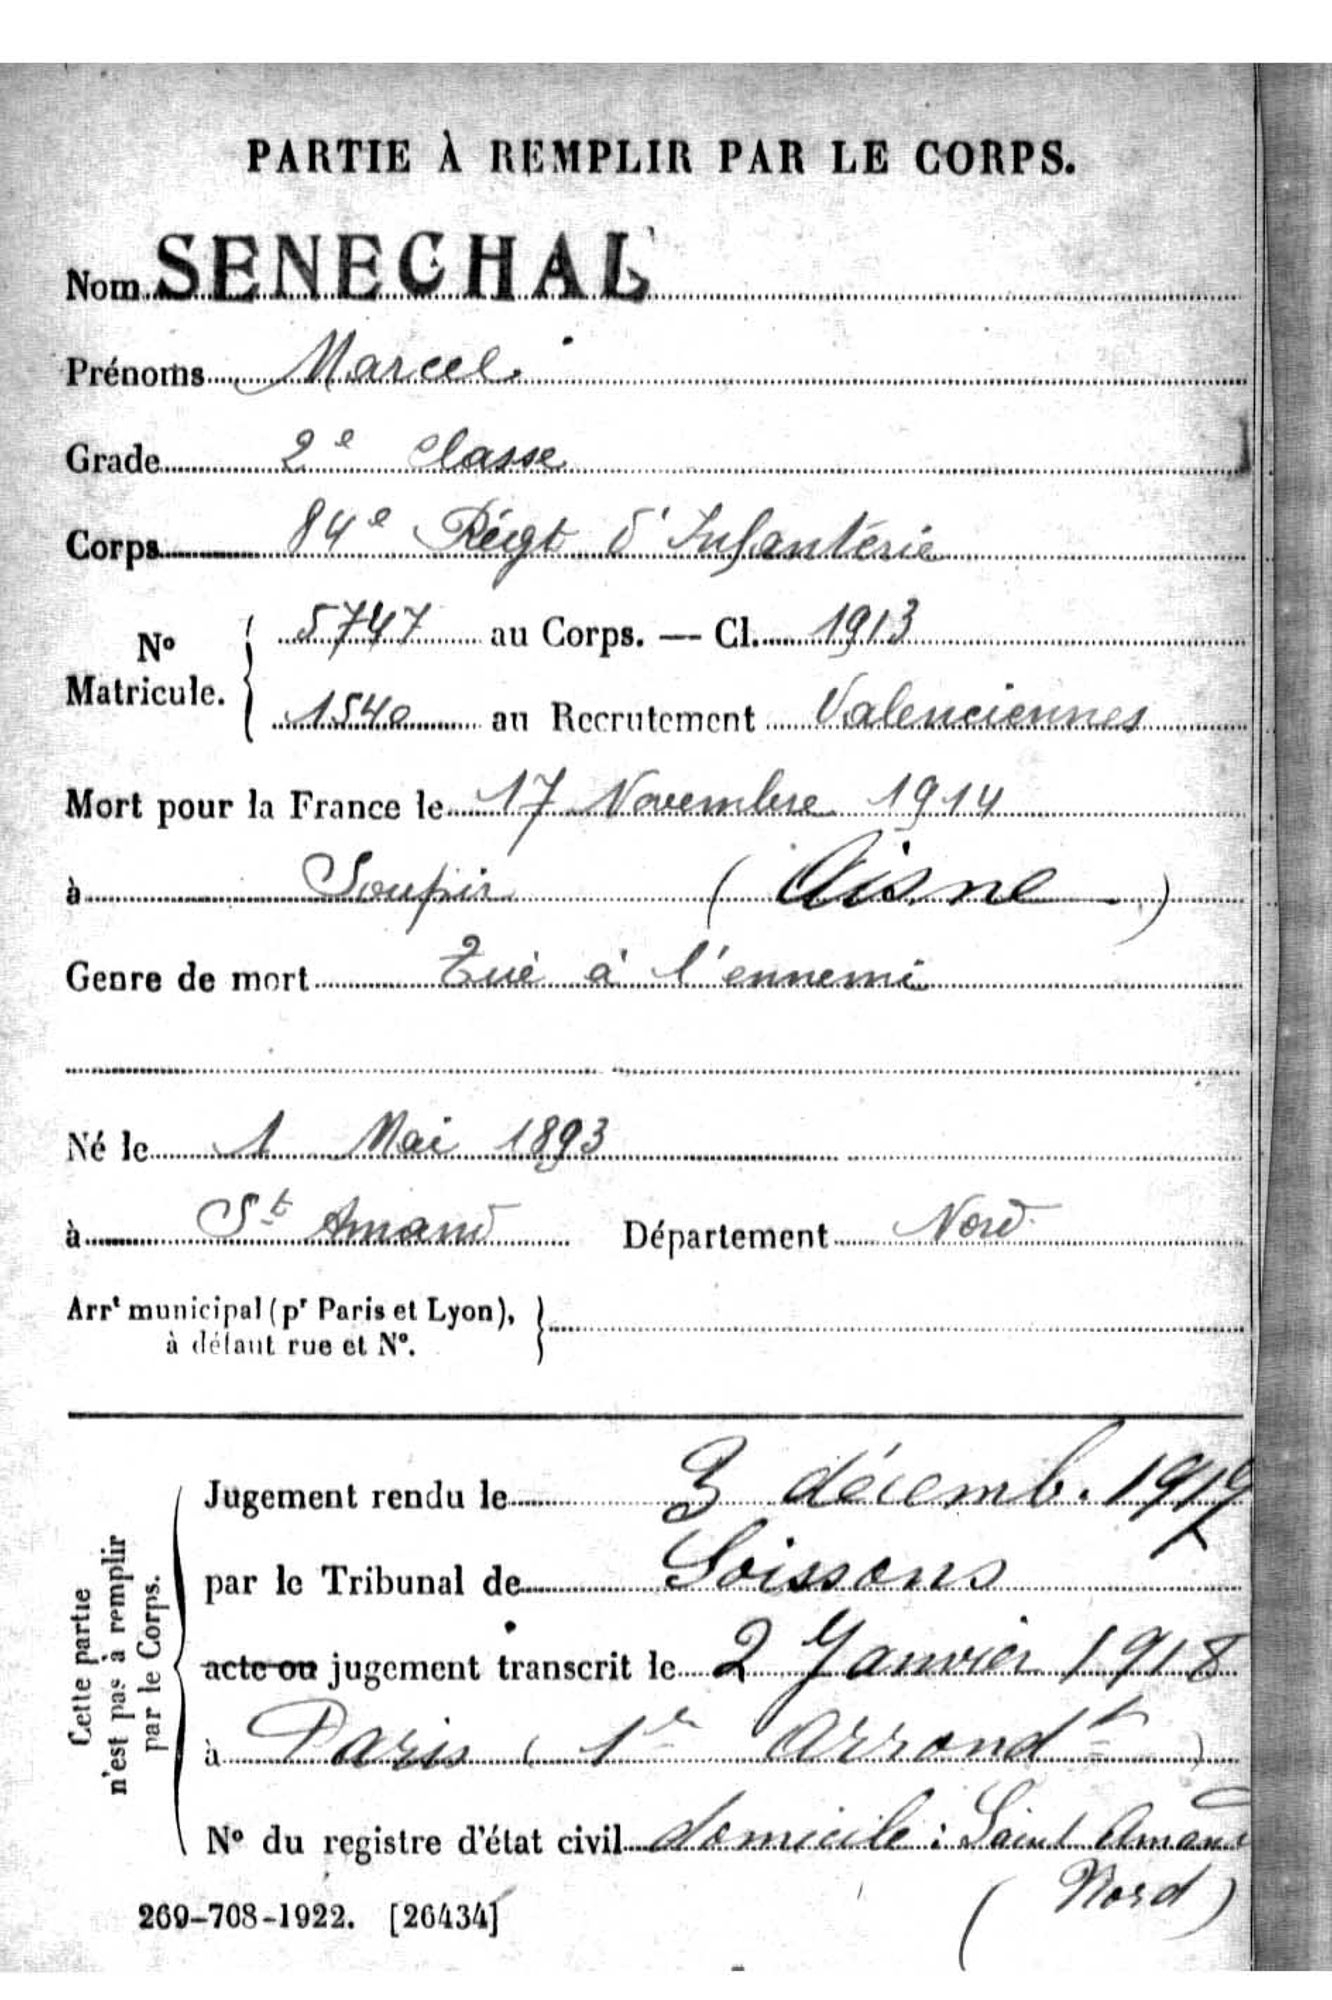 PARTIE À REMPLIR PAR LE CORPS.
Nom SENECHAL
Prénoms Marcel
Grade 2e classe
Corps 84e Régt d'Infantérie
No Matricule. { 5747 au Corps. — Cl. 1913
1540 au Recrutement Valenciennes
Mort pour la France le 17 Novembre 1914
à Soupir (Aisne)
Genre de mort Tué à l'ennemi
Né le 1 Mai 1893
à St Amand Département Nord
Arrt municipal (pr Paris et Lyon), }
à défaut rue et No.
Cette partie n'est pas à remplir par le Corps.
Jugement rendu le 3 décemb. 1917
par le Tribunal de Soissons
acte ou jugement transcrit le 2 Janvier 1918
à Paris (1er Arrondt)
No du registre d'état civil domicile : Saint Amand
(Nord)
269-708-1922. [26434]